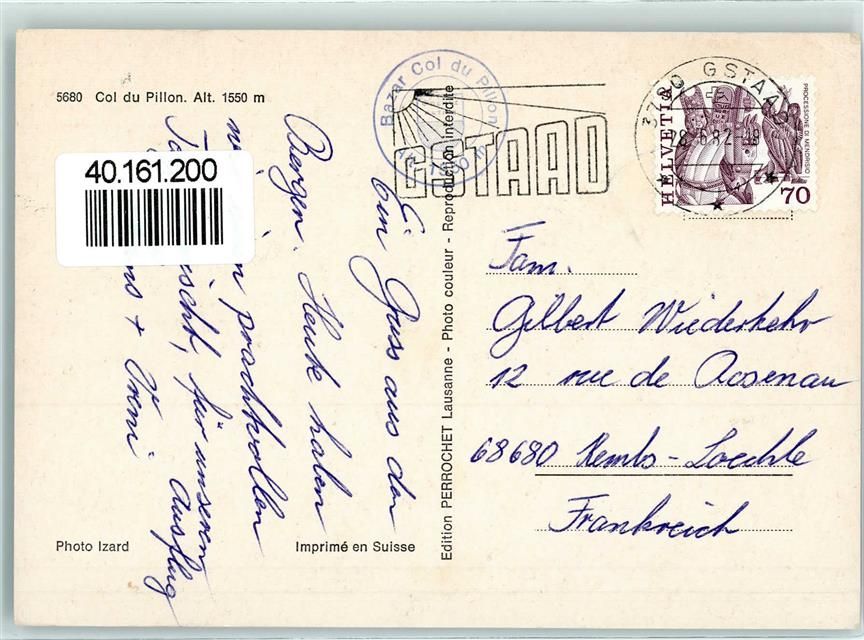 5680 Col du Pillon. Alt. 1550 m
40.161.200
Ein Gruss aus den
Bergen. Heute haben
prachtvollen
für unseren
Ausflug
+ Vreni
Photo Izard
Imprimé en Suisse
Edition PERROCHET Lausanne - Photo couleur - Reproduction interdite
Bazar Col du Pillon
GSTAAD
3780 GSTAAD
HELVETIA
PROCESSIONE DI MENDRISIO
70
Fam.
Gilbert Wiederkehr
12 rue de Rosenau
68680 Kembs-Loechle
Frankreich